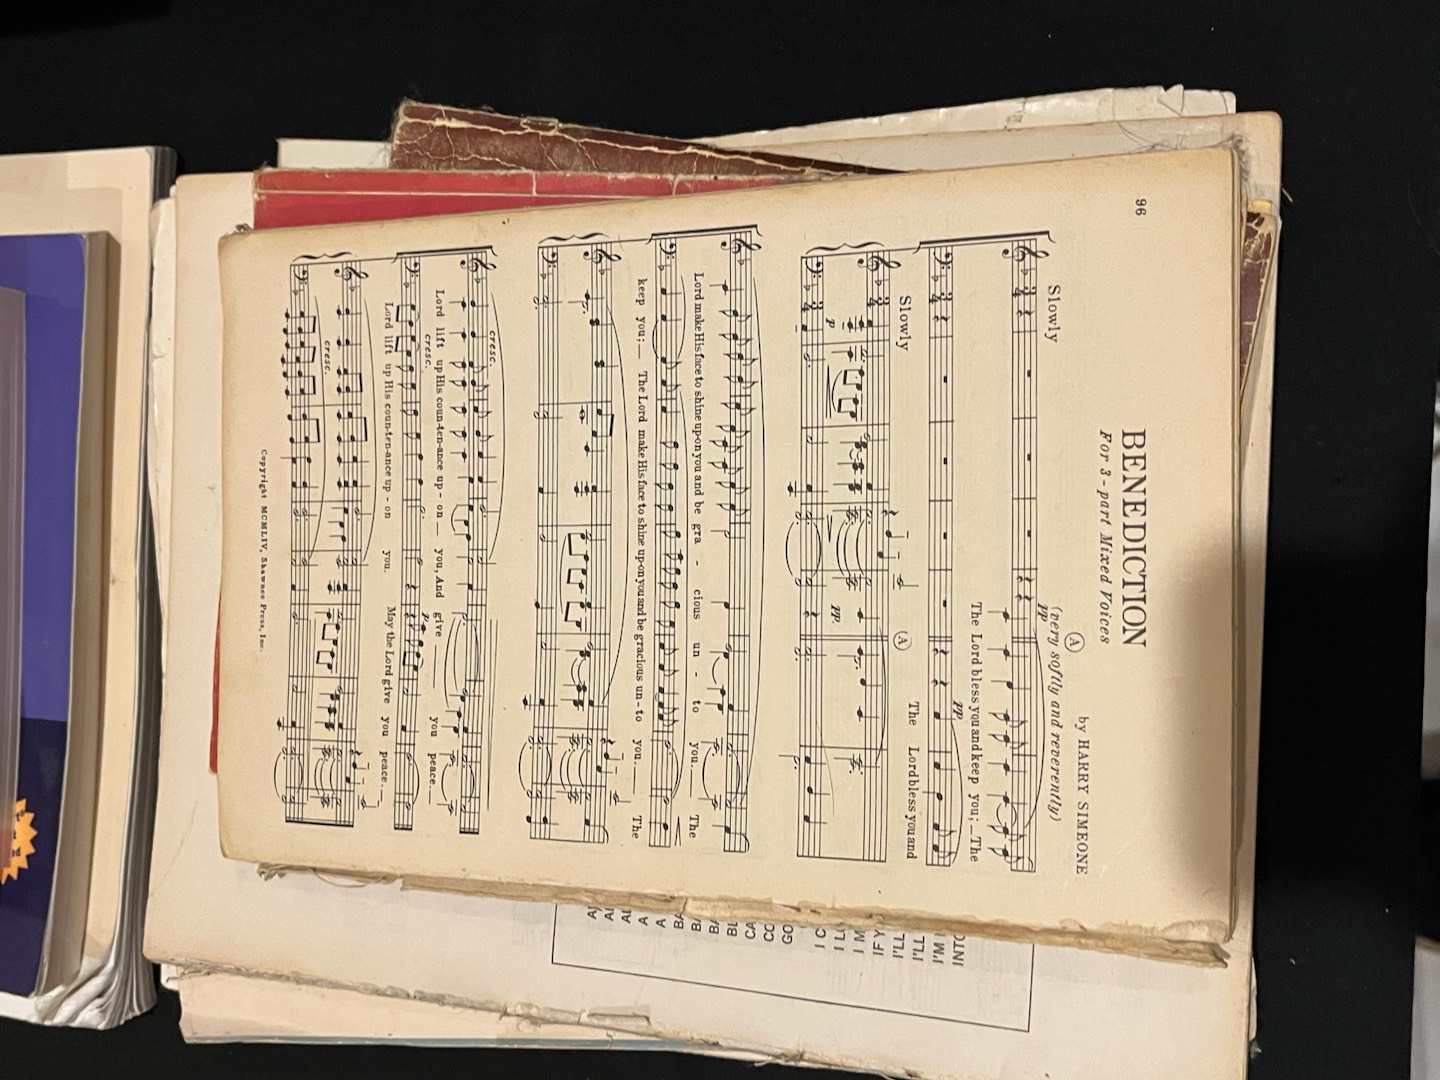 96
BENEDICTION
For 3 - part Mixed Voices
by HARRY SIMEONE
A
(very softly and reverently)
Slowly
pp
The Lord bless you and keep you; _ The
pp
The Lord bless you and
Slowly
A
p
pp
Lord make His face to shine up-on you and be gra - cious un - to you. The
keep you; The Lord make His face to shine up-on you and be gracious un-to you. The
cresc.
Lord lift up His coun-ten-ance up - on you, And give you peace.
cresc.
p
Lord lift up His coun-ten-ance up - on you. May the Lord give you peace.
cresc.
Copyright MCMLIV, Shawnee Press, Inc.
BL
CA
GO
I C
I M
IF Y
I'LL
I'LL
I'M
INTO